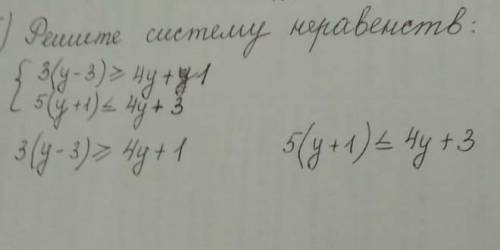 ) Решите систему неравенств:
{ 3(y-3) ≥ 4y+1
5(y+1) ≤ 4y+3
3(y-3) ≥ 4y+1 5(y+1) ≤ 4y+3